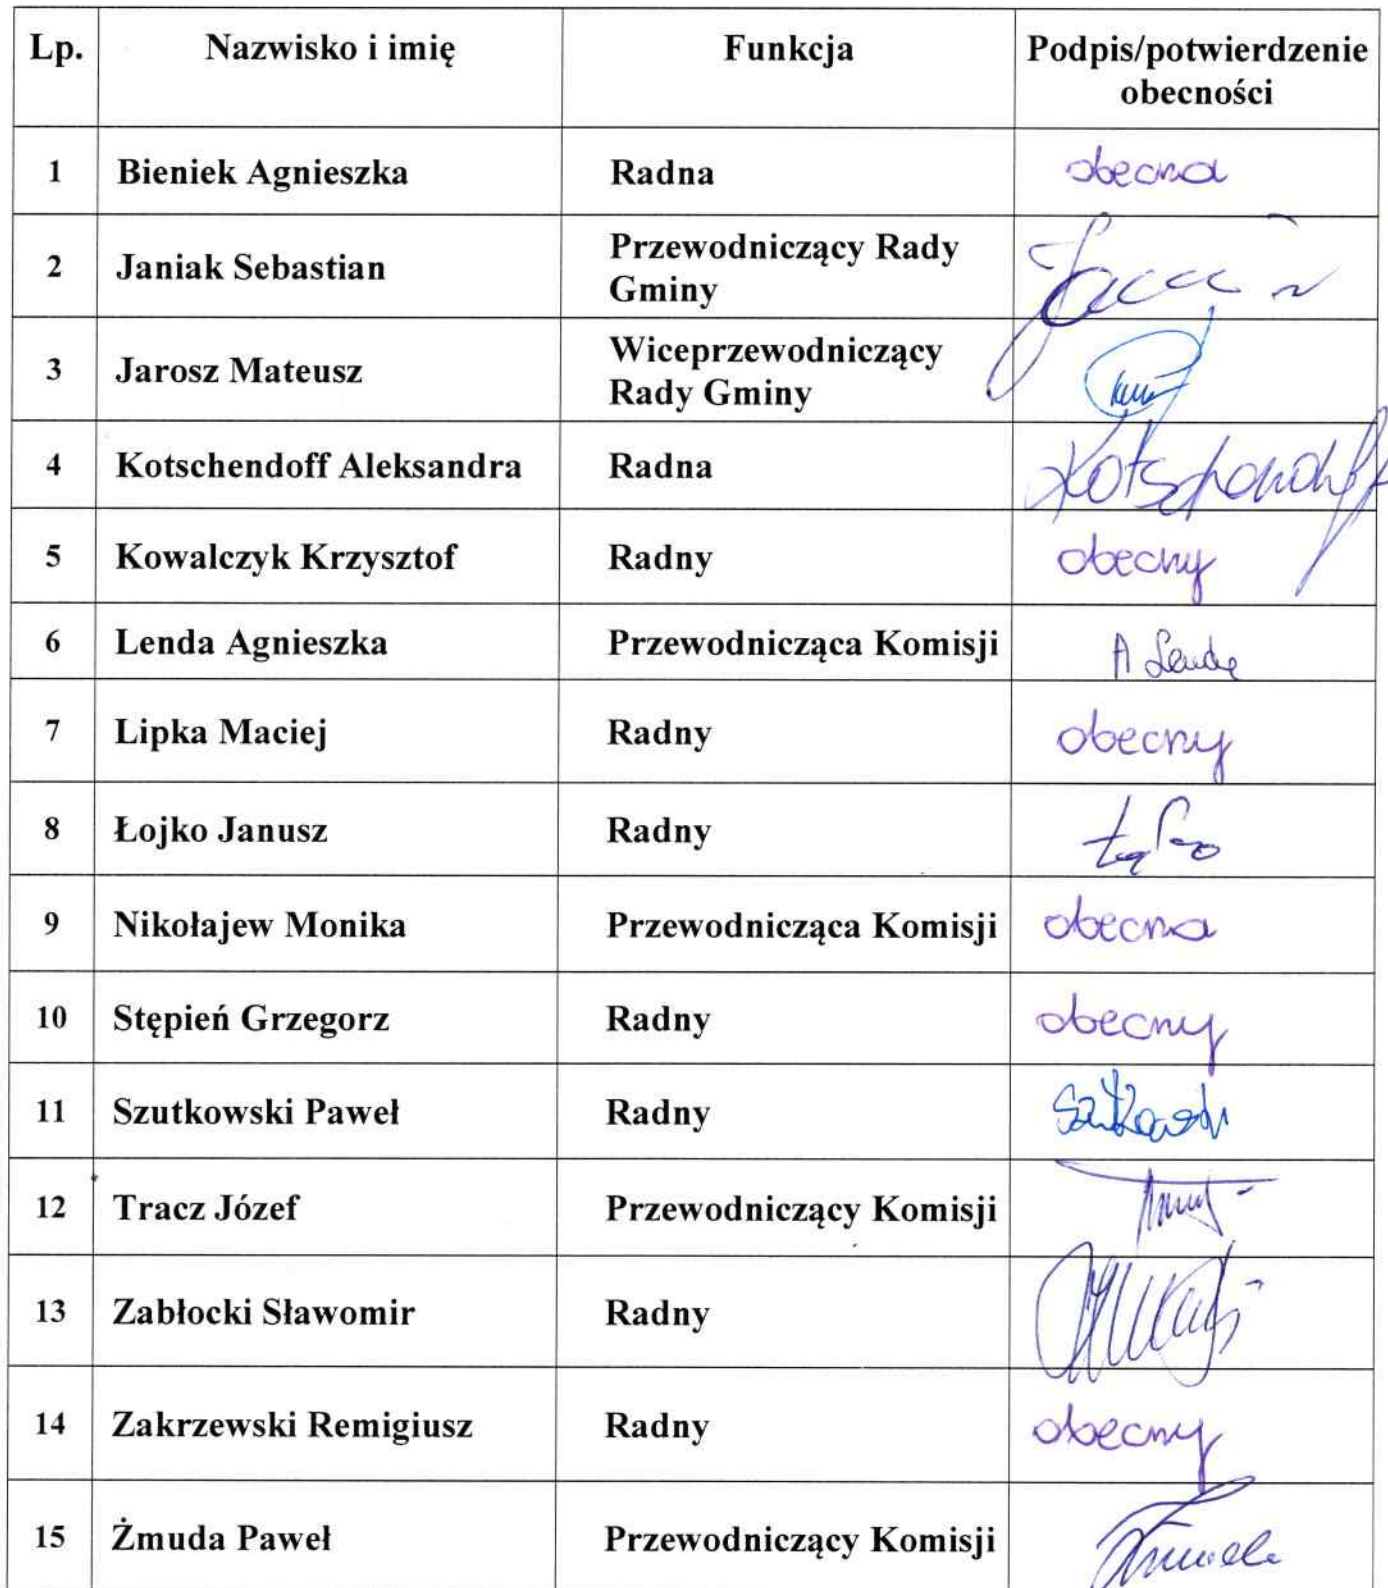 Lp. Nazwisko i imię Funkcja Podpis/potwierdzenie
obecności
1 Bieniek Agnieszka Radna obecna
2 Janiak Sebastian Przewodniczący Rady
Gminy
3 Jarosz Mateusz Wiceprzewodniczący
Rady Gminy
4 Kotschendoff Aleksandra Radna Kotschendoff
5 Kowalczyk Krzysztof Radny obecny
6 Lenda Agnieszka Przewodnicząca Komisji A Lenda
7 Lipka Maciej Radny obecny
8 Łojko Janusz Radny
9 Nikołajew Monika Przewodnicząca Komisji obecna
10 Stępień Grzegorz Radny obecny
11 Szutkowski Paweł Radny Szutkowski
12 Tracz Józef Przewodniczący Komisji
13 Zabłocki Sławomir Radny
14 Zakrzewski Remigiusz Radny obecny
15 Żmuda Paweł Przewodniczący Komisji